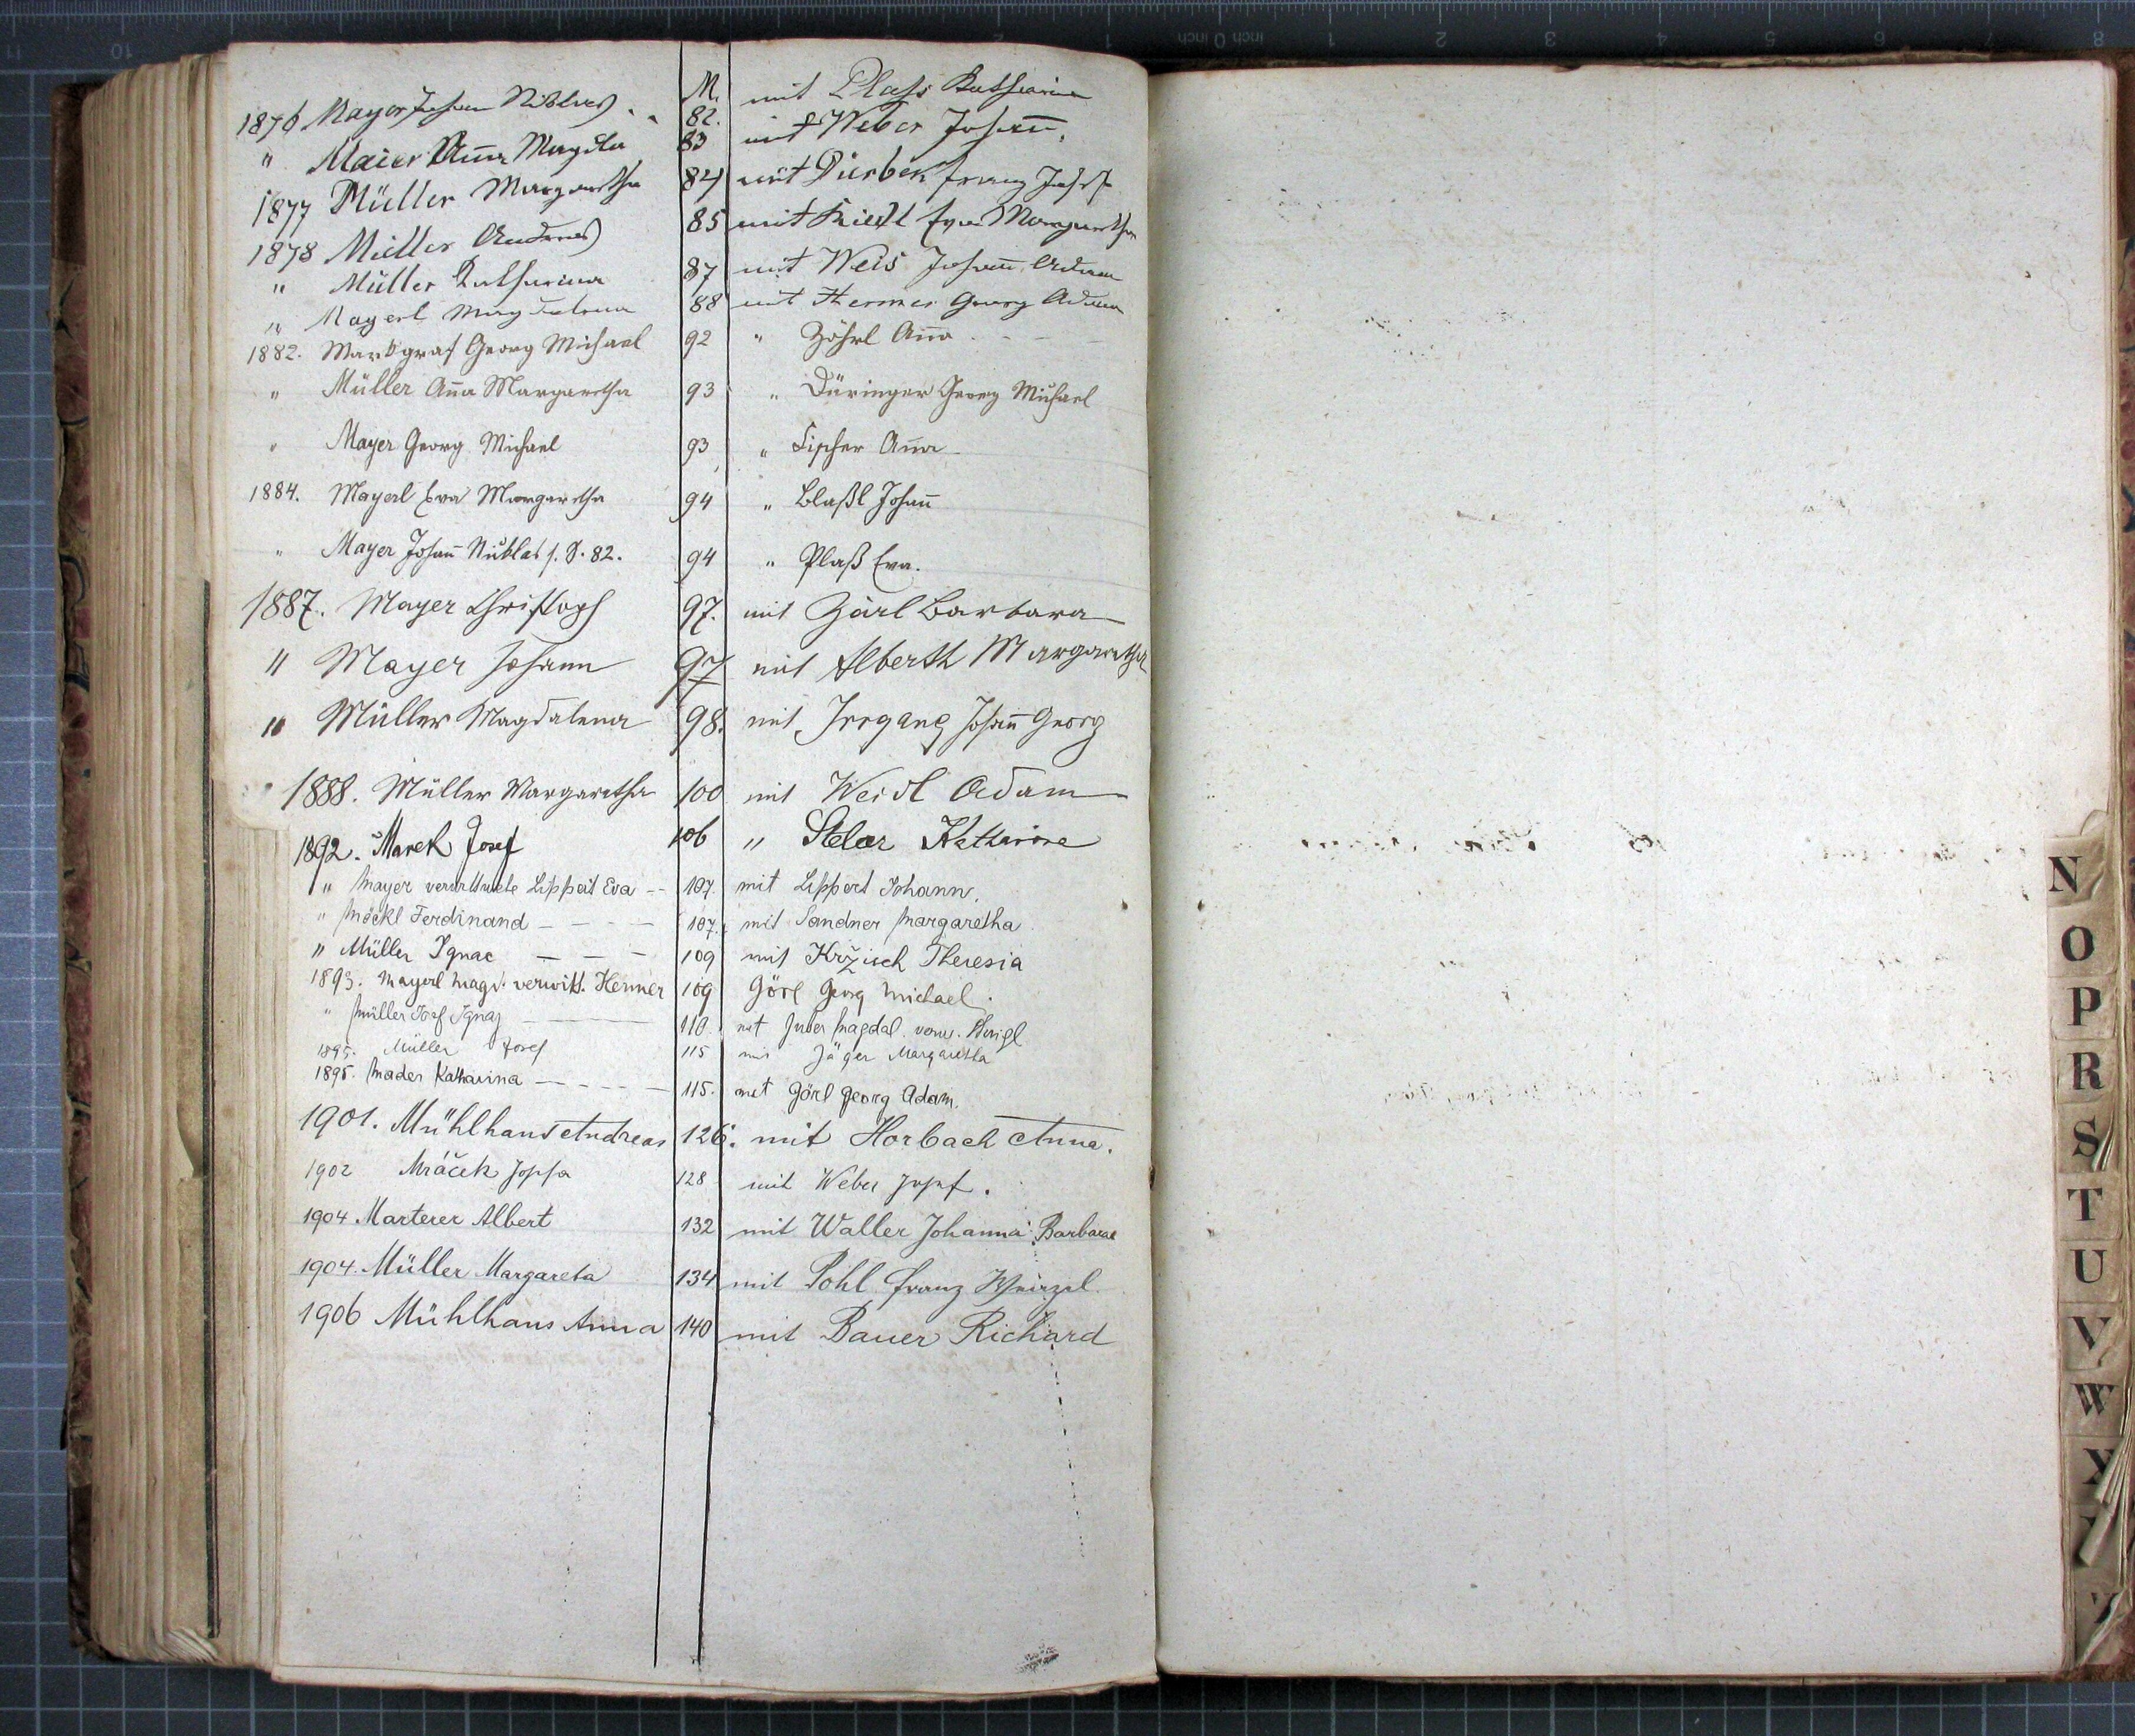 M.
1876 Mayer Johann Niklas 82. mit Plass Katharina
" Maier Anna Magdla 83 mit Weber Johann.
1877 Müller Margaretha 84 mit Dürbek Franz Josef
1878 Müller Andreas 85 mit Riedl Eva Margaretha
" Müller Katharina 87 mit Weis Johann Adam
" Mayerl Magdalena 88 mit Hermer Georg Adam
1882. Markgraf Georg Michael 92 " Zöhrl Anna
" Müller Anna Margaretha 93 " Düringer Georg Michael
" Mayer Georg Michael 93 " Fischer Anna
1884. Mayerl Eva Margaretha 94 " Blaßl Johann
" Mayer Johann Niklas s. S. 82. 94 " Plaß Eva.
1887. Mayer Christoph 97. mit Zörl Barbara
" Mayer Johann 97 mit Alberth Margaretha
" Müller Magdalena 98. mit Irrgang Johann Georg
1888. Müller Margaretha 100 mit Weidl Adam
1892. Marek Josef 106 " Katharina
" Mayer verwittwete Lippert Eva 107. mit Lippert Johann.
" Möckl Ferdinand 107. mit Sandner Margaretha
" Müller Ignac 109 mit Kržisch Theresia
1893. Mayerl Magd. verwitt. Hermer 109 Görl Georg Michael.
" Müller Josef Ignaz 110. mit Magdal. verw.
1895. Müller Josef 115 mit Jäger Margaretha
1895. Mader Katharina 115. mit Görl Georg Adam.
1901. Mühlhans Andreas 126. mit Horbach Anna.
1902 Mráček Josefa 128 mit Weber Josef.
1904 Marterer Albert 132 mit Waller Johanna Barbara
1904. Müller Margareta 134 mit Pohl Franz Wenzel.
1906 Mühlhans Anna 140 mit Bauer Richard
N
O
P
R
S
T
U
V
W
X